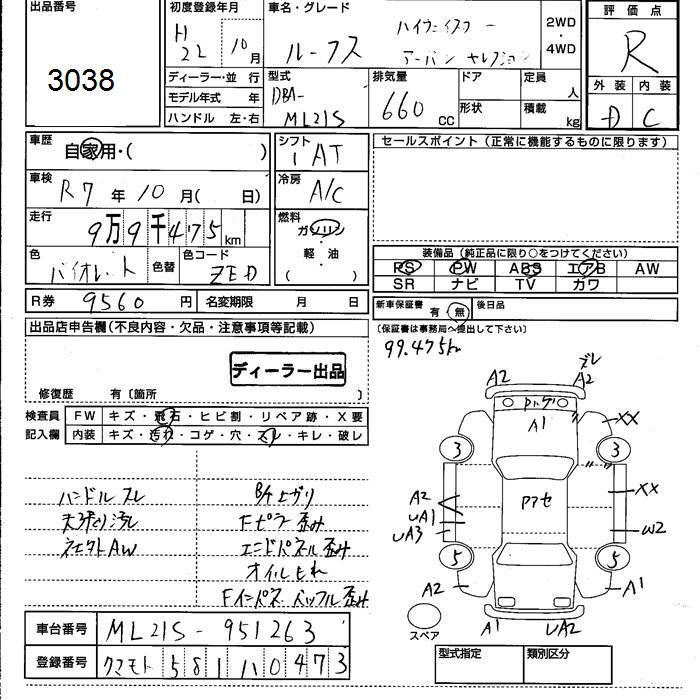 出品番号
3038
初度登録年月
H
22 10月
車名・グレード
ルークス
ハイウェイスター
アーバン セレクション
2WD
・
4WD
評価点
R
外装 内装
D C
ディーラー・並 行
モデル年式 年
ハンドル 左・右
型式
DBA-
ML21S
排気量
660 cc
ドア
形状
定員
人
積載
kg
車歴
自家用・( )
車検
R7年10月( 日)
走行
9万9千475km
色
バイオレット
色替
色コード
ZED
シフト
IAT
冷房
A/C
燃料
ガソリン
・
軽・油
( )
セールスポイント(正常に機能するものに限ります)
装備品(純正品に限り○をつけてください)
PS PW ABS エアB AW
SR ナビ TV カワ
R券 9560円 名変期限 月 日
新車保証書 有・無 後日品
(保証書は事務局へ提出して下さい)
99.475km
出品店申告欄(不良内容・欠品・注意事項等記載)
ディーラー出品
修復歴 有〔箇所 〕
検査員
記入欄
FW キズ・飛石・ヒビ割・リペア跡・X要
内装 キズ・汚れ・コゲ・穴・スレ・キレ・破レ
ハンドル スレ
天張り汚レ
ネクトAW
B/K上ガリ
Fピラー歪み
エンドパネル歪み
オイルもれ
Fインパネ バッフル歪み
A2
ズレ
A2
A1
XX
3
3
XX
A2
UA1
UA3
W2
5
5
A2
A1
A1
UA2
スペア
車台番号 ML21S-951263
登録番号 クマモト 581 ハ 0473
型式指定
類別区分